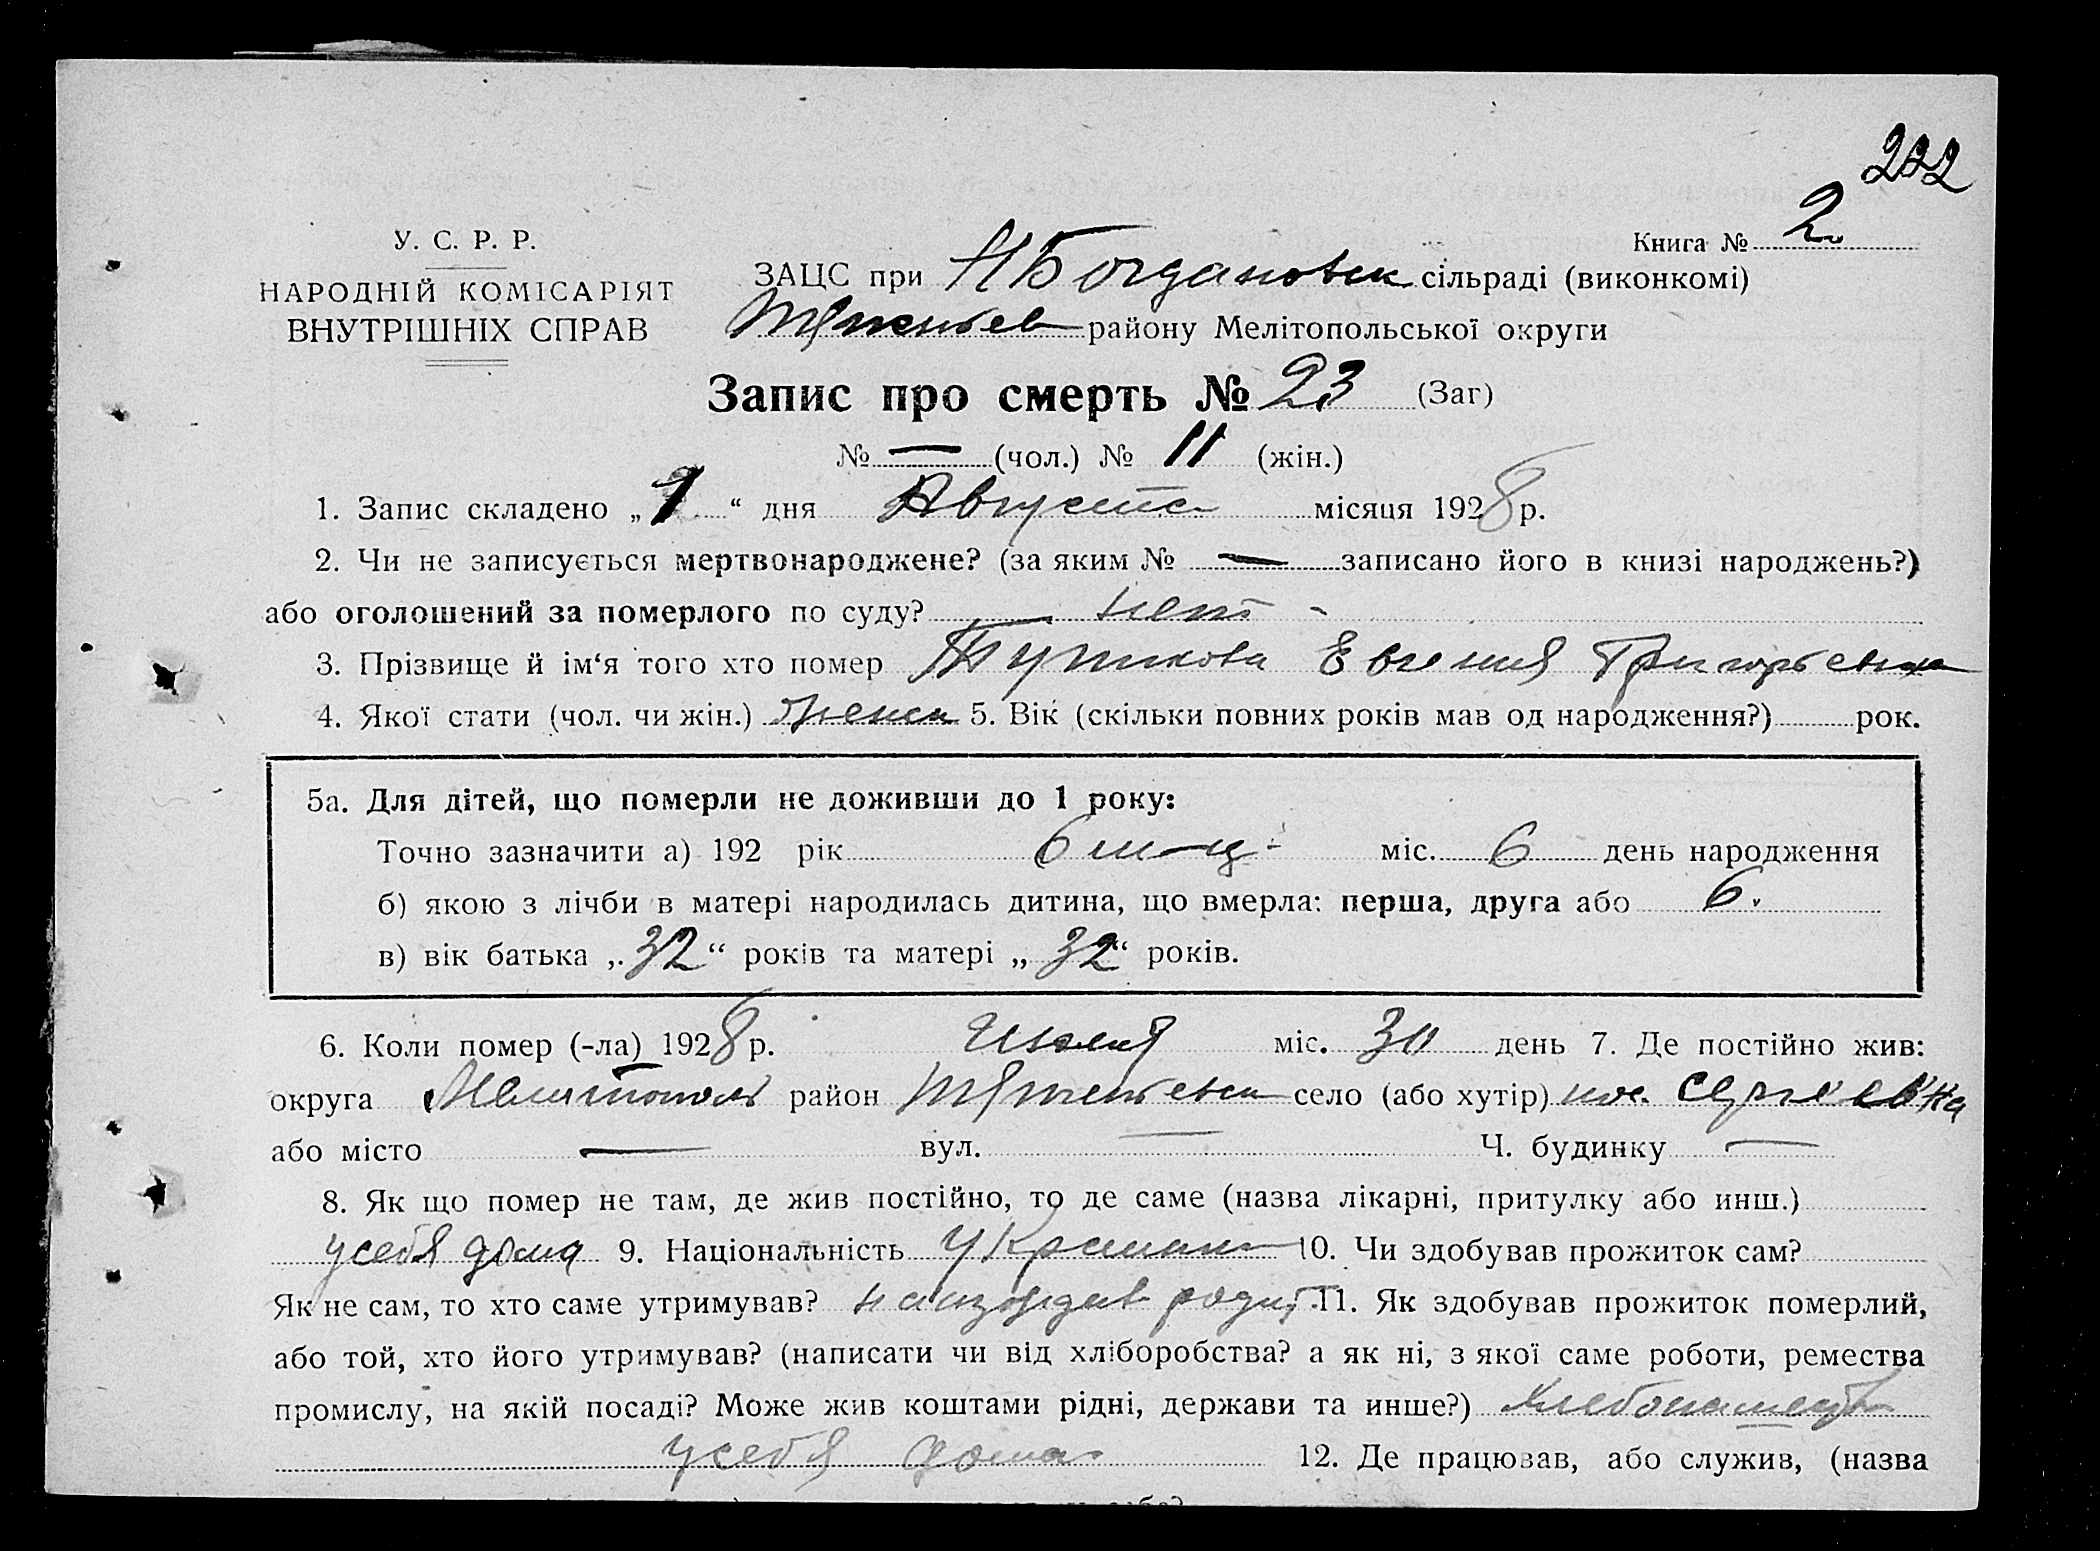 222
Книга № 2
У. С. Р. Р.
НАРОДНІЙ КОМІСАРІЯТ
ВНУТРІШНІХ СПРАВ
ЗАЦС при НБогдановск сільраді (виконкомі)
району Мелітопольської округи
Запис про смерть № 23 (Заг)
№ — (чол.) № 11 (жін.)
1. Запис складено „ “ дня Августа місяця 1928 р.
2. Чи не записується мертвонароджене? (за яким № — записано його в книзі народжень?)
або оголошений за померлого по суду? нет -
3. Прізвище й ім‘я того хто помер Евгения Григорьевна
4. Якої стати (чол. чи жін.) женск 5. Вік (скільки повних років мав од народження?) рок.
5а. Для дітей, що померли не доживши до 1 року:
Точно зазначити а) 192 рік 6 м-ц міс. 6 день народження
б) якою з лічби в матері народилась дитина, що вмерла: перша, друга або 6.
в) вік батька „32“ років та матері „32“ років.
6. Коли помер (-ла) 1928 р. Июля міс. 30 день 7. Де постійно жив:
округа Мелитополь район село (або хутір) пос. Сергеевка
або місто — вул. — Ч. будинку —
8. Як що помер не там, де жив постійно, то де саме (назва лікарні, притулку або инш.)
у себя дома 9. Національність Украинк 10. Чи здобував прожиток сам?
Як не сам, то хто саме утримував? на иждив родит 11. Як здобував прожиток померлий,
або той, хто його утримував? (написати чи від хліборобства? а як ні, з якої саме роботи, ремества
промислу, на якій посаді? Може жив коштами рідні, держави та инше?) Хлебопашеств
у себя дома 12. Де працював, або служив, (назва